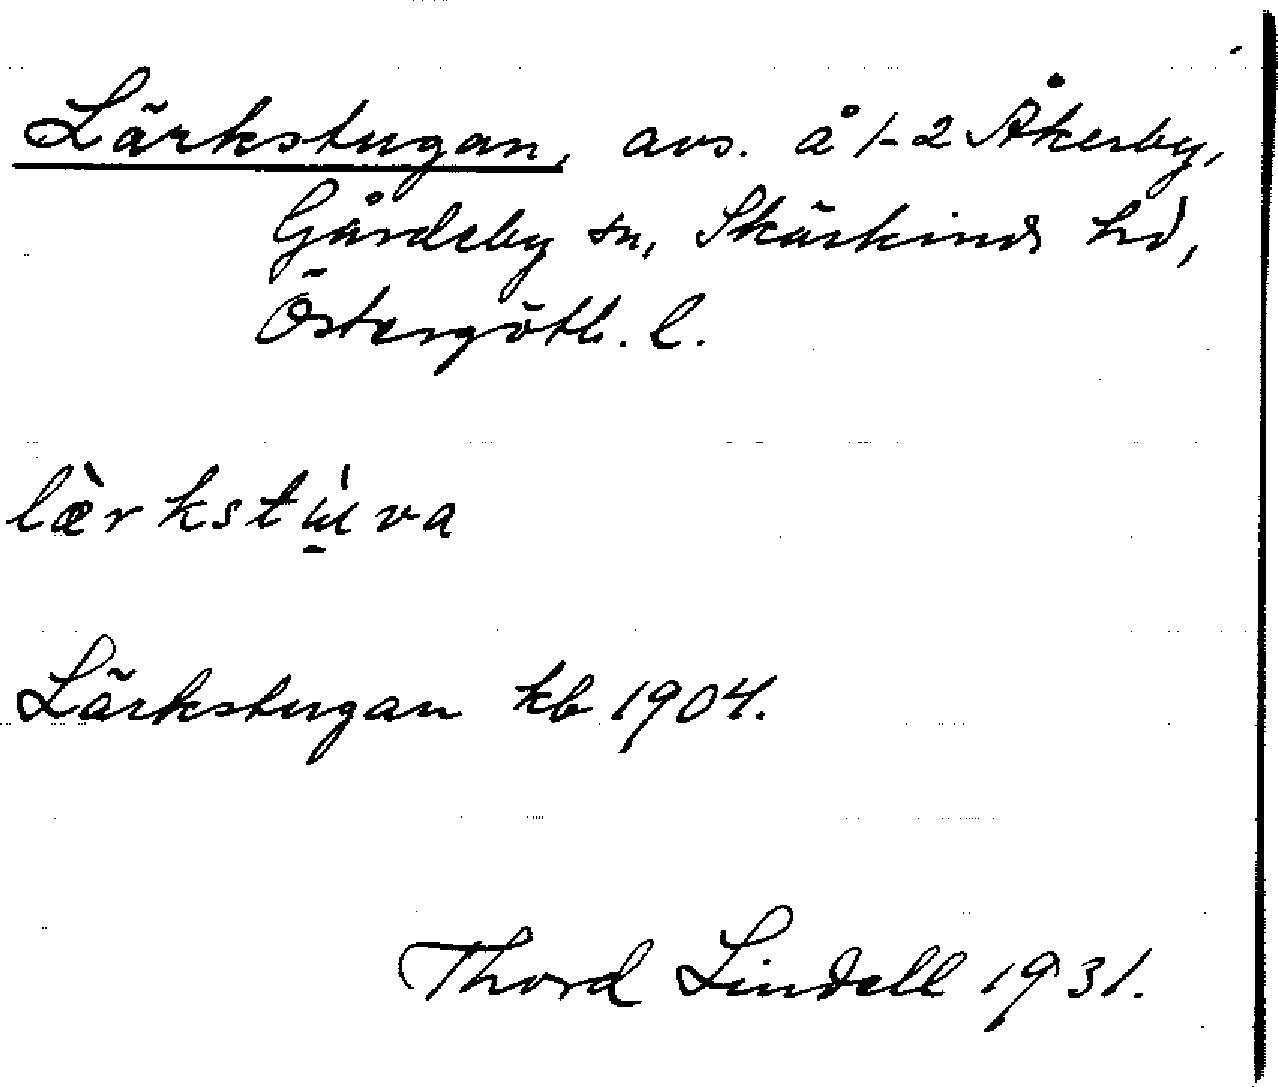 Lärkstugan, avs. å 1-2 Åkerby,
Gårdeby sn, Skärkinds hd,
Östergötl. l.
læ̀rkstú̱va
Lärkstugan kb 1904.
Thord Lindell 1931.